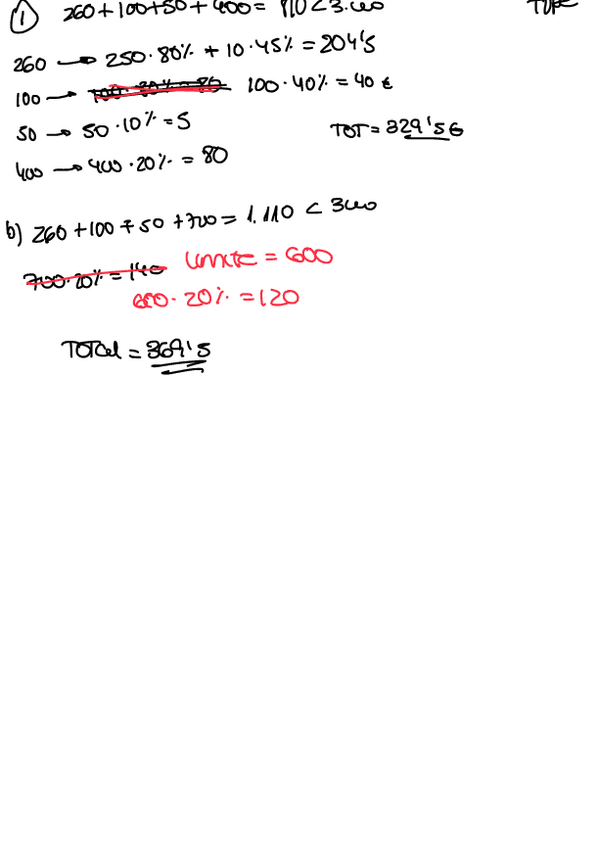 ① 260+100+50+400= 810<3.000
260 → 250·80% + 10·45% = 204'5
100 → 100·80%=80 100·40% = 40 €
50 → 50·10% = 5
TOT = 329'5€
400 → 400·20% = 80
b) 260+100+50+700= 1.110 < 3000
700·20% = 140 límite = 600
600·20% = 120
TOTal = 369'5